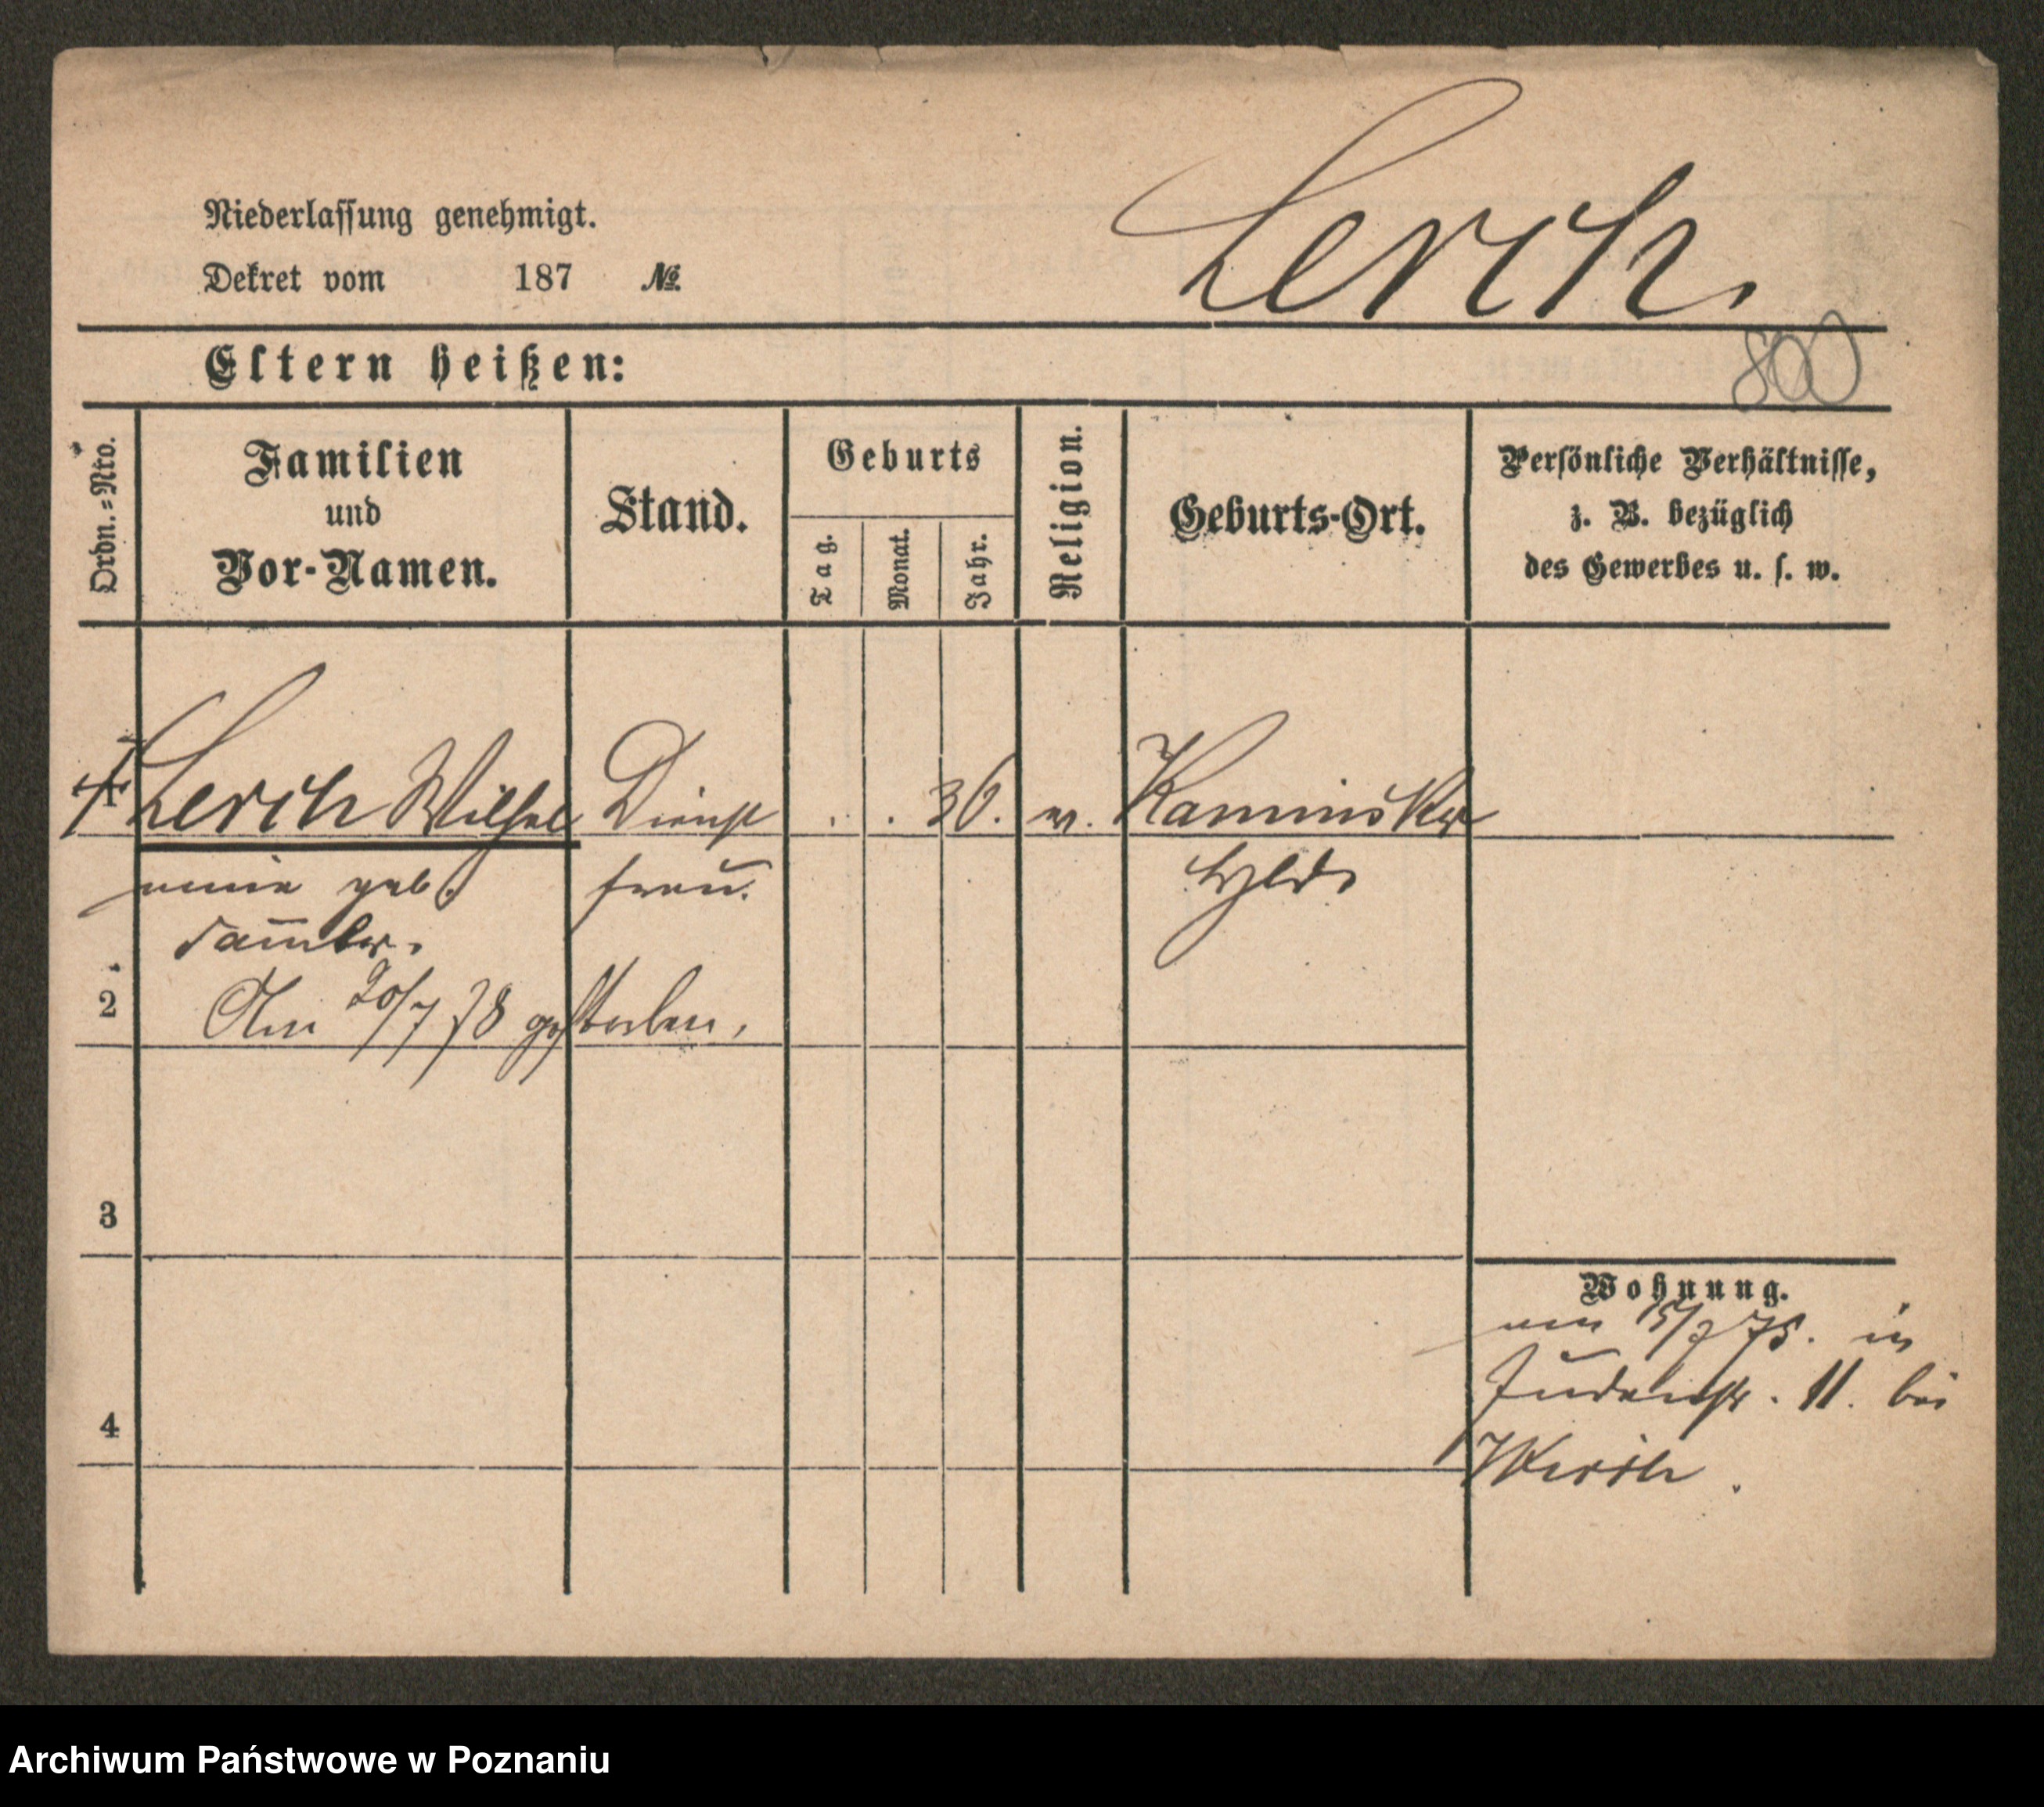 Lerch.
Niederlassung genehmigt.
Dekret vom 187 №
800
Eltern heißen:
Ordn.=Nro.
Familien
und
Vor-Namen.
Stand.
Geburts
Tag.
Monat.
Jahr.
Religion.
Geburts-Ort.
Persönliche Verhältnisse,
z. B. bezüglich
des Gewerbes u. s. w.
Lerch Wilhel Dienst . . 36. Kaminsker
mine geb. frau. Hlds
2
Am 20/7 78 gestorben.
3
Wohnung.
15/7 75. in
Judenstr. 11. bei
4
Archiwum Państwowe w Poznaniu